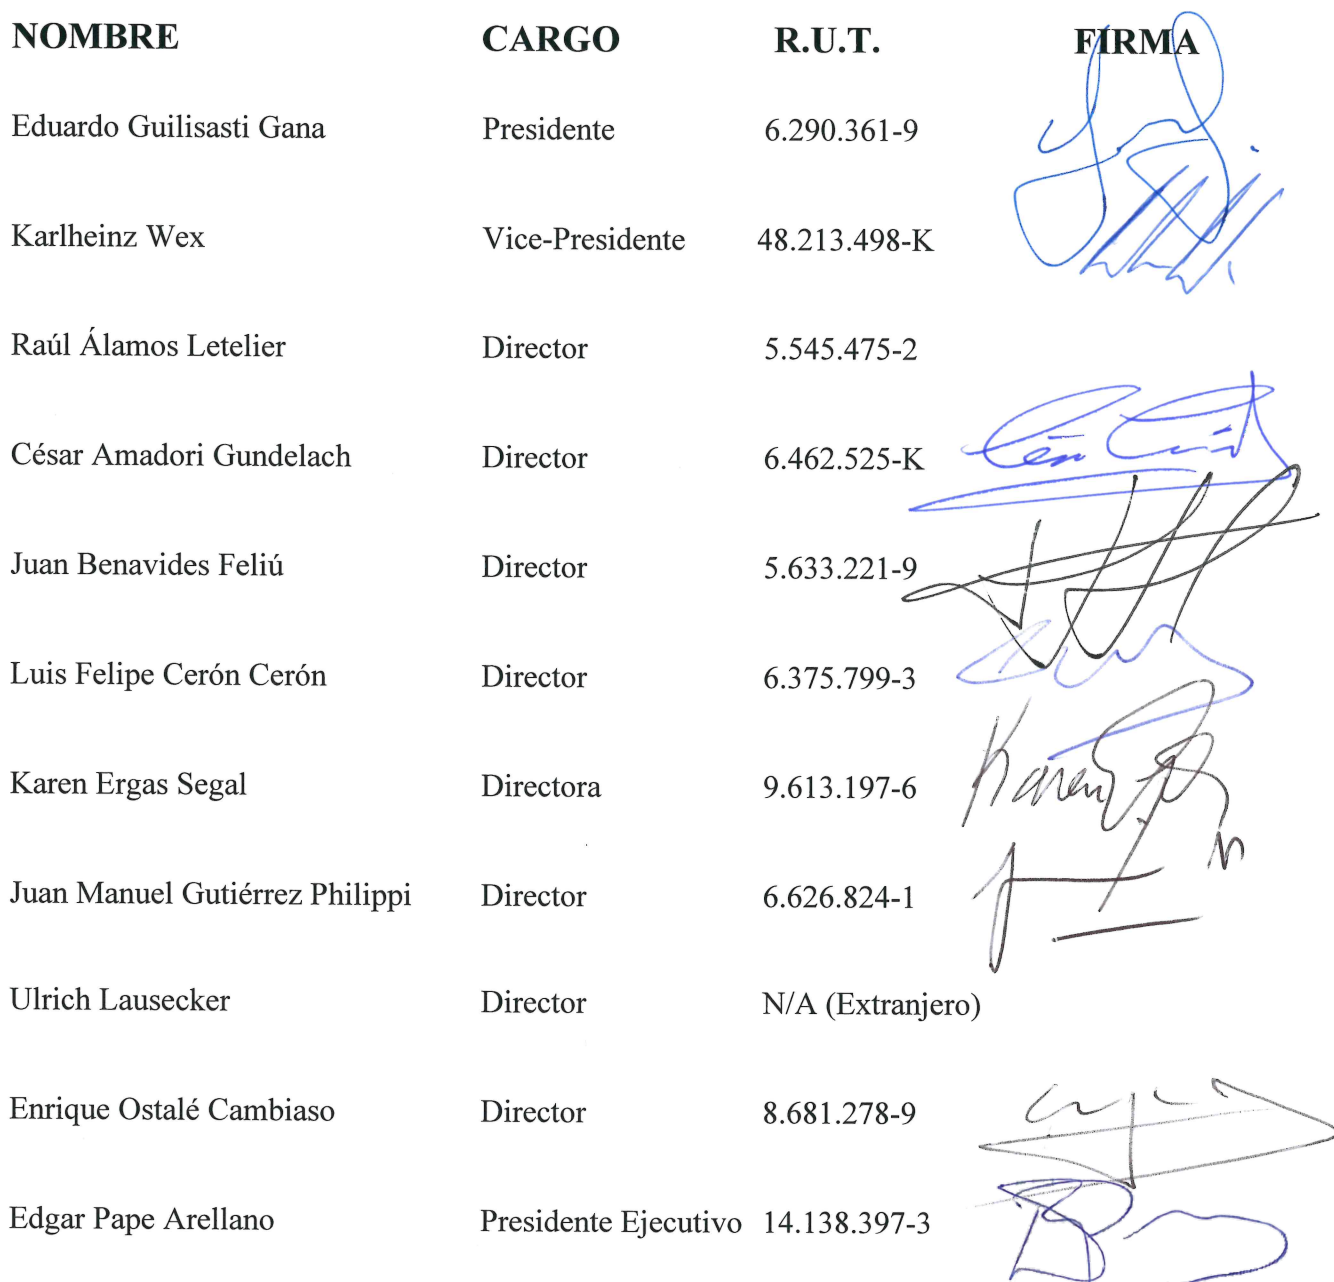 NOMBRE CARGO R.U.T. FIRMA
Eduardo Guilisasti Gana Presidente 6.290.361-9
Karlheinz Wex Vice-Presidente 48.213.498-K
Raúl Álamos Letelier Director 5.545.475-2
César Amadori Gundelach Director 6.462.525-K
Juan Benavides Feliú Director 5.633.221-9
Luis Felipe Cerón Cerón Director 6.375.799-3
Karen Ergas Segal Directora 9.613.197-6 Karen
Juan Manuel Gutiérrez Philippi Director 6.626.824-1
Ulrich Lausecker Director N/A (Extranjero)
Enrique Ostalé Cambiaso Director 8.681.278-9
Edgar Pape Arellano Presidente Ejecutivo 14.138.397-3